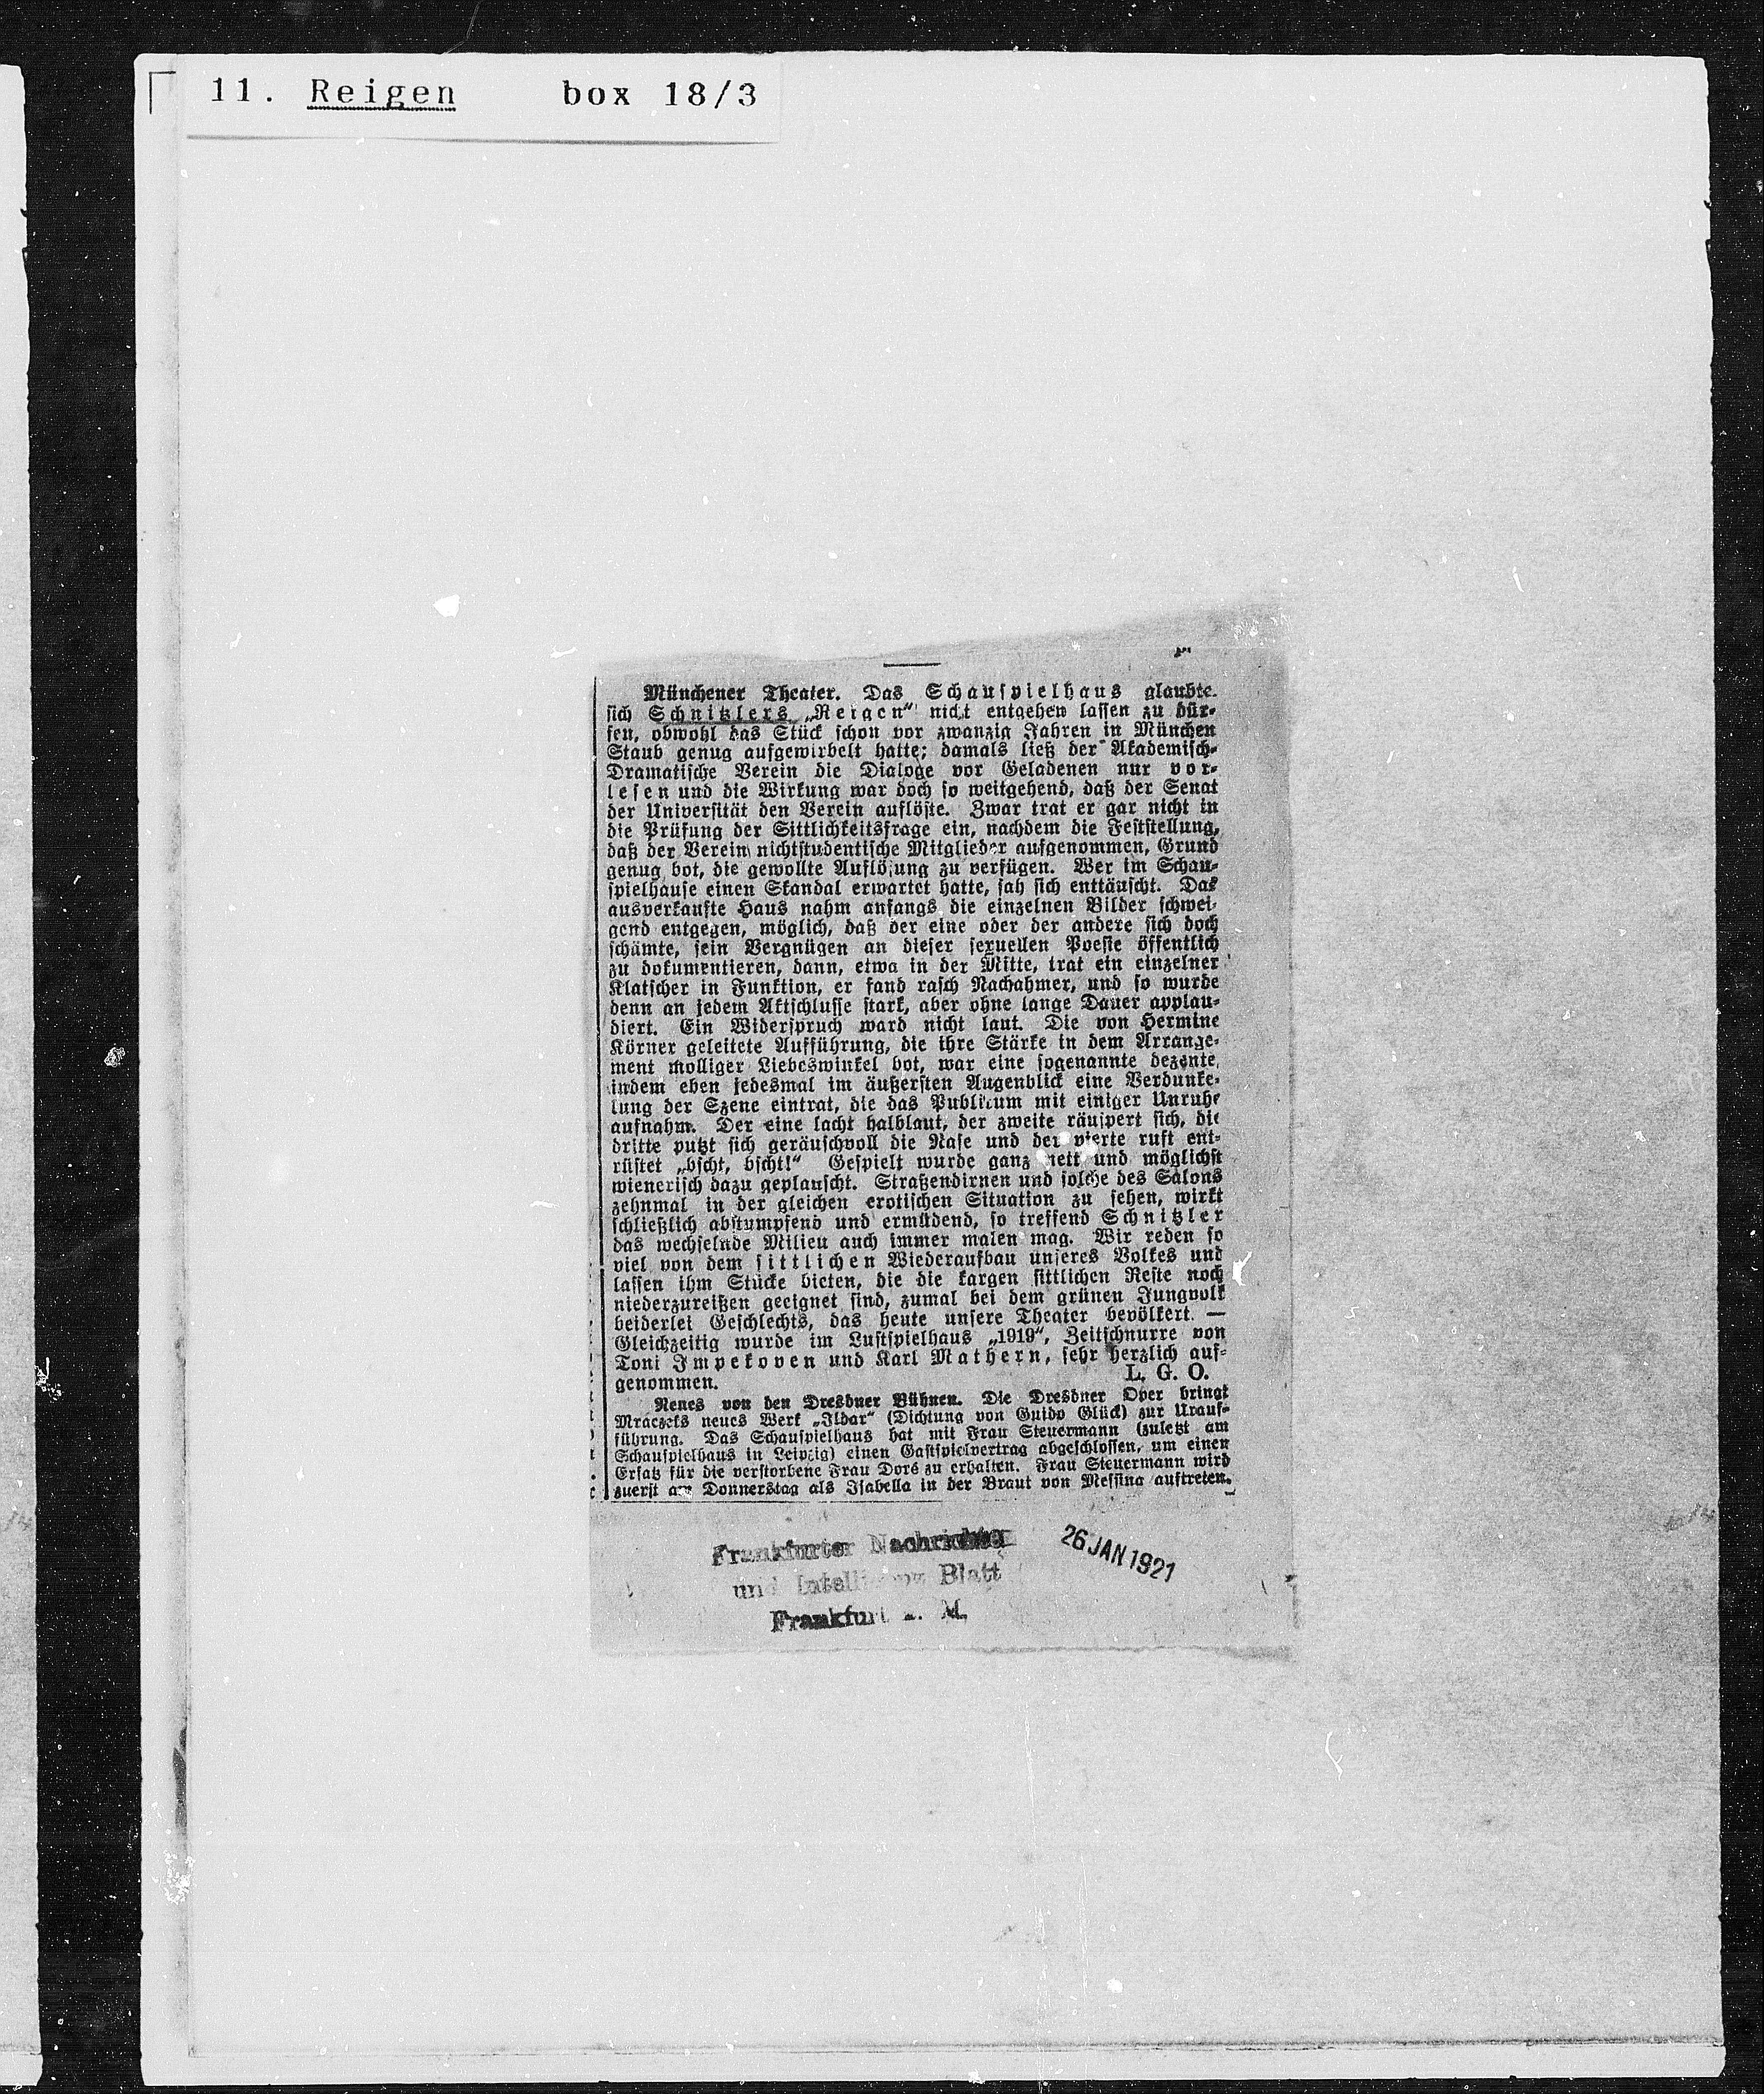 11. Reigen box 18/3
Münchener Theater. Das Schauspielhaus glaubte
sich Schnitzlers „Reigen“ nicht entgehen lassen zu dür-
fen, obwohl das Stück schon vor zwanzig Jahren in München
Staub genug aufgewirbelt hatte; damals ließ der Akademisch-
Dramatische Verein die Dialoge vor Geladenen nur vor-
lesen und die Wirkung war doch so weitgehend, daß der Senat
der Universität den Verein auflöste. Zwar trat er gar nicht in
die Prüfung der Sittlichkeitsfrage ein, nachdem die Feststellung,
daß der Verein nichtstudentische Mitglieder aufgenommen, Grund
genug bot, die gewollte Auflösung zu verfügen. Wer im Schau-
spielhause einen Skandal erwartet hatte, sah sich enttäuscht. Das
ausverkaufte Haus nahm anfangs die einzelnen Bilder schwei-
gend entgegen, möglich, daß der eine oder der andere sich doch
schämte, sein Vergnügen an dieser sexuellen Poesie öffentlich
zu dokumentieren, dann, etwa in der Mitte, trat ein einzelner
Klatscher in Funktion, er fand rasch Nachahmer, und so wurde
denn an jedem Aktschlusse stark, aber ohne lange Dauer applau-
diert. Ein Widerspruch ward nicht laut. Die von Hermine
Körner geleitete Aufführung, die ihre Stärke in dem Arrange-
ment molliger Liebeswinkel bot, war eine sogenannte dezente,
indem eben jedesmal im äußersten Augenblick eine Verdunke-
lung der Szene eintrat, die das Publikum mit einiger Unruhe
aufnahm. Der eine lacht halblaut, der zweite räuspert sich, die
dritte putzt sich geräuschvoll die Nase und der vierte ruft ent-
rüstet „bscht, bscht!“ Gespielt wurde ganz nett und möglichst
wienerisch dazu geplauscht. Straßendirnen und solche des Salons
zehnmal in der gleichen erotischen Situation zu sehen, wirkt
schließlich abstumpfend und ermüdend, so treffend Schnitzler
das wechselnde Milieu auch immer malen mag. Wir reden so
viel von dem sittlichen Wiederaufbau unseres Volkes und
lassen ihm Stücke bieten, die die kargen sittlichen Reste noch
niederzureißen geeignet sind, zumal bei dem grünen Jungvolk
beiderlei Geschlechts, das heute unsere Theater bevölkert. —
Gleichzeitig wurde im Lustspielhaus „1919“, Zeitschnurre von
Toni Impekoven und Karl Mathern, sehr herzlich auf-
genommen. L. G. O.
Neues von den Dresdner Bühnen. Die Dresdner Oper bringt
Mraczeks neues Werk „Ildar“ (Dichtung von Guido Glück) zur Urauf-
führung. Das Schauspielhaus hat mit Frau Steuermann (zuletzt am
Schauspielhaus in Leipzig) einen Gastspielvertrag abgeschlossen, um einen
Ersatz für die verstorbene Frau Doré zu erhalten. Frau Steuermann wird
zuerst am Donnerstag als Isabella in der Braut von Messina auftreten.
Frankfurter Nachrichten 26 JAN 1921
und Intelligenz Blatt
Frankfurt a. M.